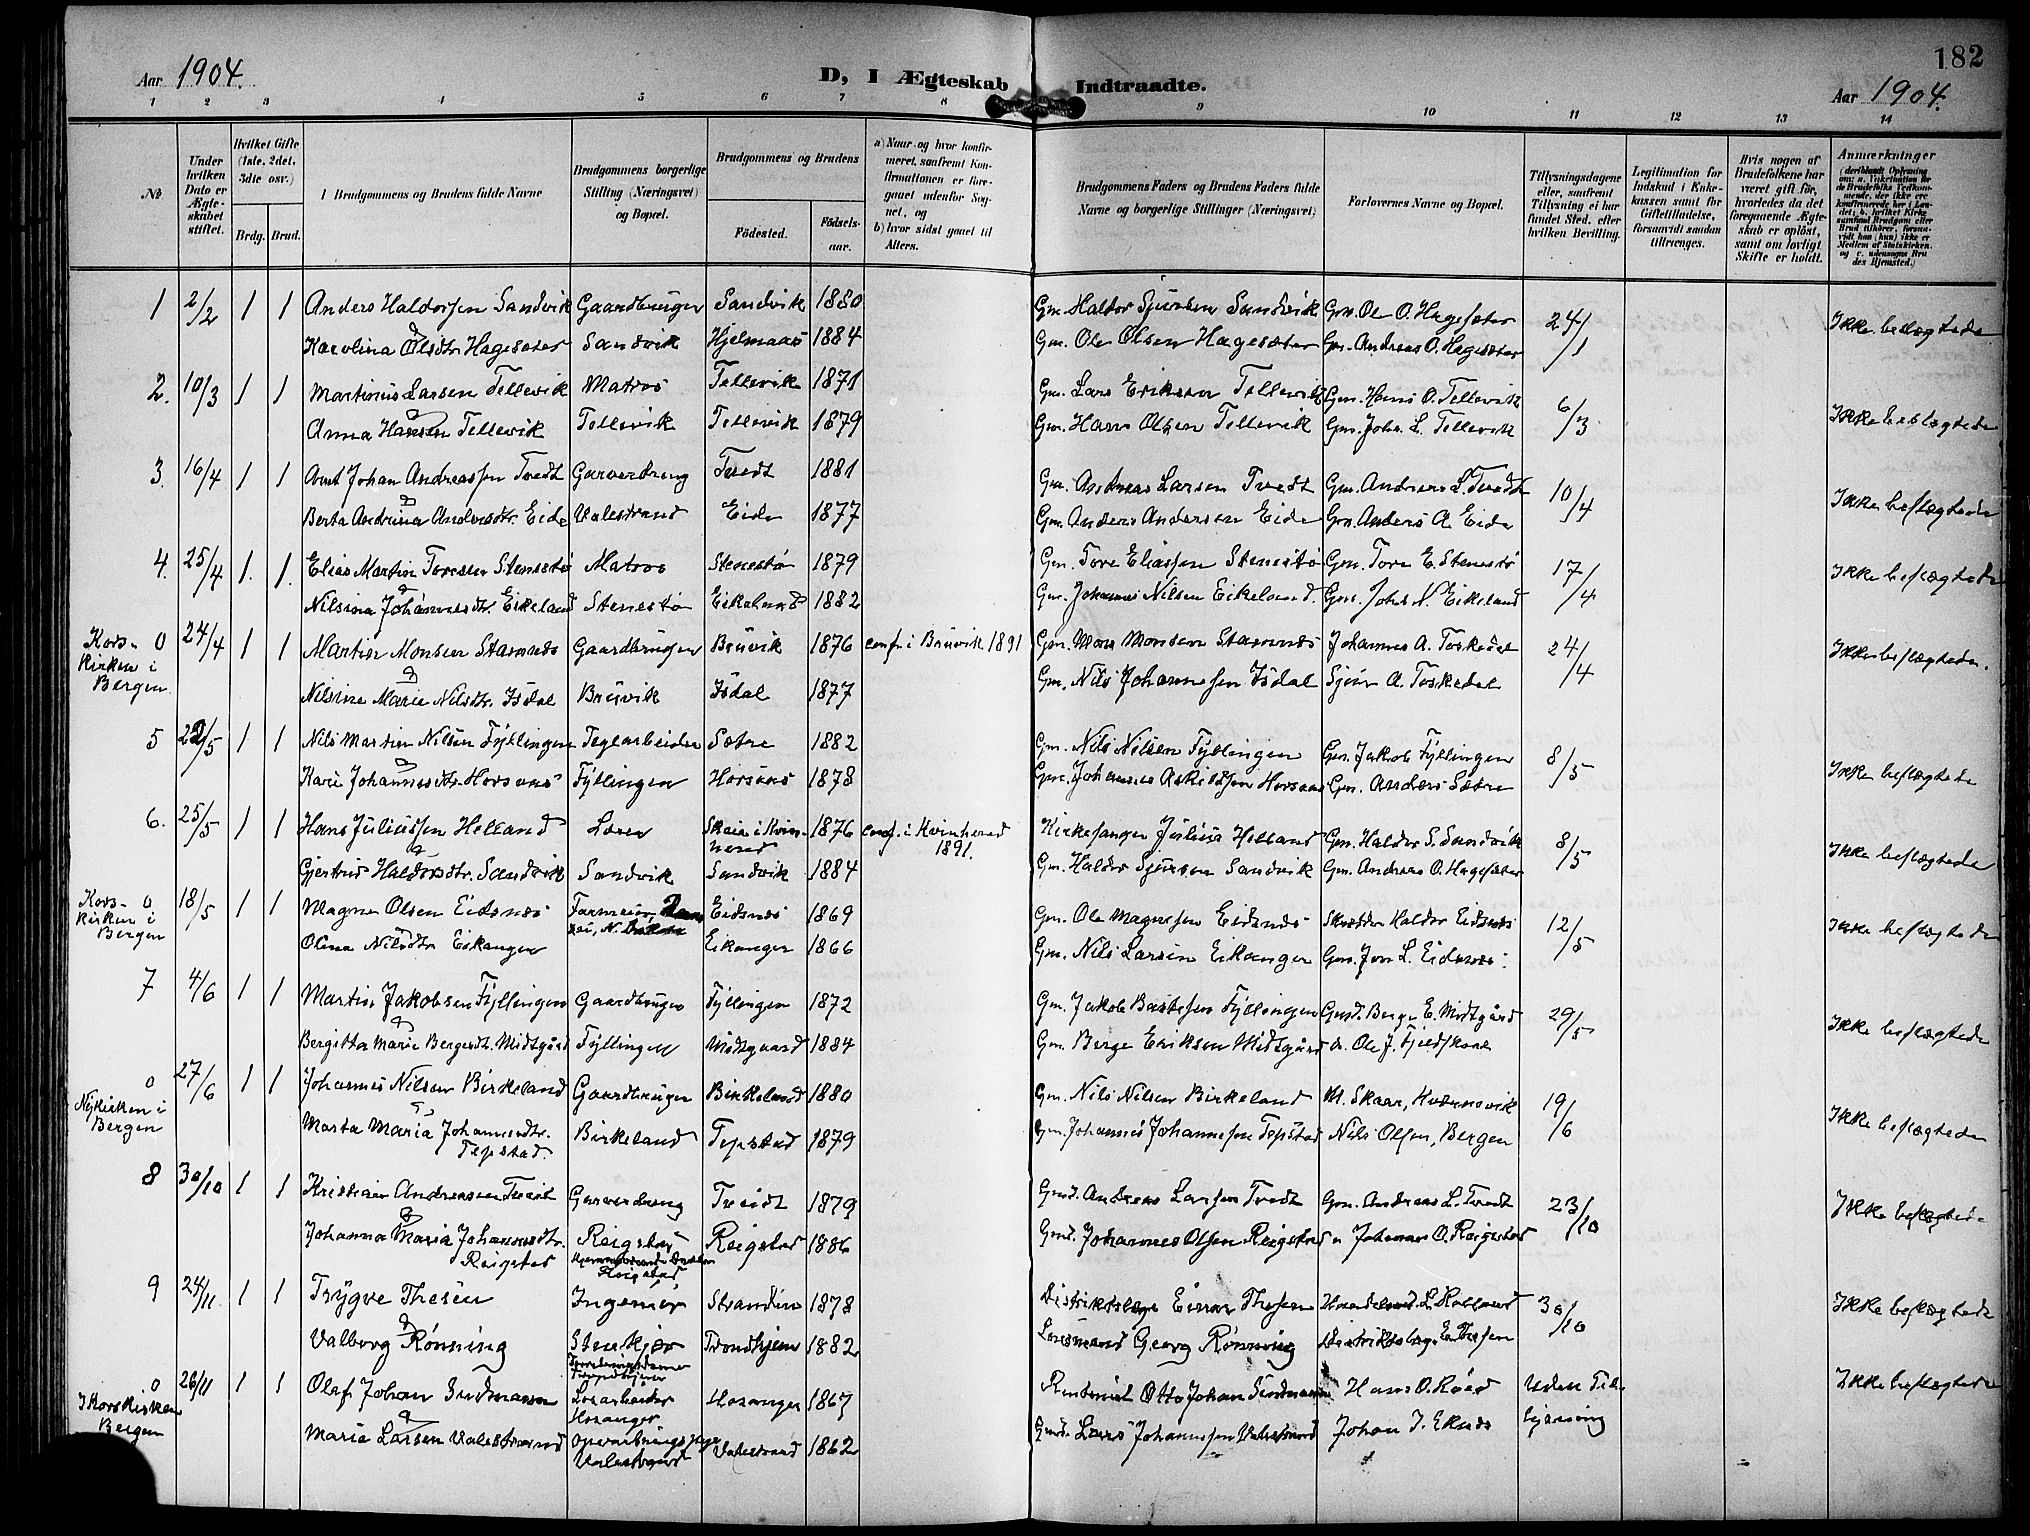 182
Aar 1904.
D, I Ægteskab Indtraadte.
Aar 1904.
1 2 3 4 5 6 7 8 9 10 11 12 13 14
No
Under hvilken Dato er Ægteskabet stiftet.
Hvilket Gifte (1ste, 2det, 3die osv.)
Brdg. Brud.
Brudgommens og Brudens fulde Navne
Brudgommens borgerlige Stilling (Næringsvei) og Bopæl.
Brudgommens og Brudens
Fødested.
Fødselsaar.
a) Naar og hvor konfirmeret, samt om Konfirmationen er foregaaet udenfor Sognet, og
b) hvor sidst gaaet til Alters.
Brudgommens Faders og Brudens Faders fulde Navne og borgerlige Stillinger (Næringsvei)
Forlovernes Navne og Bopæl.
Tillysningsdagene eller, saafremt Tillysning ei har fundet Sted, efter hvilken Bevilling.
Legitimation for Indskud i Enkekassen samt for Giftetilladelse, forsaavidt saadan tiltrænges.
Hvis nogen af Brudefolkene har været gift før, hvorledes da det foregaaende Ægteskab er opløst, samt om lovligt Skifte er holdt.
Anmærkninger
1 2/2 1 1 Anders Haldorsen Sandvik Gaardbruger Sandvik 1880 Gm. Haldor Sjursen Sandvik Gm. Ole O. Hagesæter 24/1 Ikke beslægtede
& Karolina Olsdtr. Hagesæter Sandvik Hjelmaas 1884 Gm. Ole Olsen Hagesæter Gm. Andreas O. Hagesæter
2. 10/3 1 1 Martinus Larsen Tellevik Matros Tellevik 1871 Gm. Lars Eriksen Tellevik Gm. Hans O. Tellevik 6/3 Ikke beslægtede
& Anna Hansen Tellevik Tellevik Tellevik 1879 Gm. Hans Olsen Tellevik Gm. Johs. L. Tellevik
3. 16/4 1 1 Arnt Johan Andreassen Tvedt Garverdreng Tvedt 1881 Gm. Andreas Larsen Tvedt Gm. Andreas L. Tvedt 10/4 Ikke beslægtede
& Berta Andrina Andersdtr. Eide Valestrand Eide 1877 Gm. Anders Andersen Eide Gm. Anders A. Eide
4. 25/4 1. 1. Elias Martin Toresen Stenestø Matros Stenestø 1879 Gm. Tore Eliassen Stenestø Gm. Tore E. Stenestø 17/4 Ikke beslægtede
& Nilsina Johannesdtr. Eikeland Stenestø Eikeland 1882 Gm. Johannes Nilsen Eikeland. Gm. Johs N. Eikeland
Korskirken i Bergen 0 24/4 1 1 Martin Monsen Stamnes Gaardbruger Bruvik 1876 conf. i Bruvik 1891 Gm. Mons Monsen Stamnes Johannes A. Toskedal 24/4 Ikke beslægtede.
& Nilsine Marie Nilsdtr. Isdal Bruvik Isdal 1877 Gm. Nils Johannesen Isdal Sjur A. Toskedal
5 22/5 1 1 Nils Martin Nilsen Fyllingen Teglarbeider Sætre 1882 Gm. Nils Nilsen Fyllingen Gm. Jakob Fyllingen 8/5 Ikke beslægtede
& Kari Johannesdtr. Horsaas Fyllingen Horsaas 1878 Gm. Johannes Askildsen Horsaas Gm. Anders Sætre
6. 25/5 1 1 Hans Juliussen Helland Lærer Skeie i Kvinherred 1876 conf. i Kvinherred 1891. Kirkesanger Julius Helland Gm. Haldor S. Sandvik 8/5 Ikke beslægtede
& Gjertrud Haldorsdtr. Sandvik Sandvik Sandvik 1884 Gm. Haldor Sjursen Sandvik Gm. Andreas O. Hagesæter
Korskirken i Bergen 0 18/5 1 1 Magne Olsen Eidsnes Farmer, N. Dakota Eidsnes 1869 Gm. Ole Magnesen Eidsnes Skrædder Haldor Eidsnes 12/5 Ikke beslægtede
& Olina Nilsdtr Eikanger Eikanger 1866 Gm. Nils Larsen Eikanger Gm. Jon L. Eidsnes.
7 4/6 1 1 Martin Jakobsen Fyllingen Gaardbruger Fyllingen 1872 Gm. Jakob Bastesen Fyllingen Gmd. Berge E. Midtgård 29/5 Ikke beslægtede
& Bergitta Marie Bergesdt. Midtgård Fyllingen Midtgaard 1884 Gm. Berge Eriksen Midtgård Ole J. Fjeldskaal
Nykirken i Bergen 0 27/6 1 1 Johannes Nilsen Birkeland Gaardbruger Birkeland 1880 Gm. Nils Nilsen Birkeland M. Skaar, Hværnevik 19/6 Ikke beslægtede
& Marta Maria Johannesdtr. Tepstad. Birkeland Tepstad 1879 Gm. Johannes Johannesen Tepstad Nils Olsen, Bergen
8 30/10 1 1 Kristian Andreassen Tveit Garverdreng Tveidt 1879 Gmd. Andreas Larsen Tvedt Gm. Andreas L. Tvedt 23/10 Ikke beslægtede
& Johanna Maria Johannesdtr. Reigstad Reigstad Reigstad 1886 Gmd. Johannes Olsen Reigstad " Johannes O. Reigstad
9 24/11 1 1 Trygve Thesen Ingeniør Strandvin 1878 Distriktslæge Einar Thesen Handelsmd. L. Rolland 30/10 Ikke beslægtede
& Valborg Rønning Stenkjær Trondhjem 1882 Lensmand Georg Rønning Distriktslæge E. Thesen
0 Korskirken Bergen 26/11 1 1 Olaf Johan Sundmann Løsarbeider Hosanger Hosanger 1867 Otto Johan Sundmann Hans O. Røed Uden Tillysning Ikke beslægtede
& Maria Larsen Valestrand Opvartningspige Valestrand Valestrand 1862 Gmd. Lars Johannessen Valestrand Johan J. Eknes